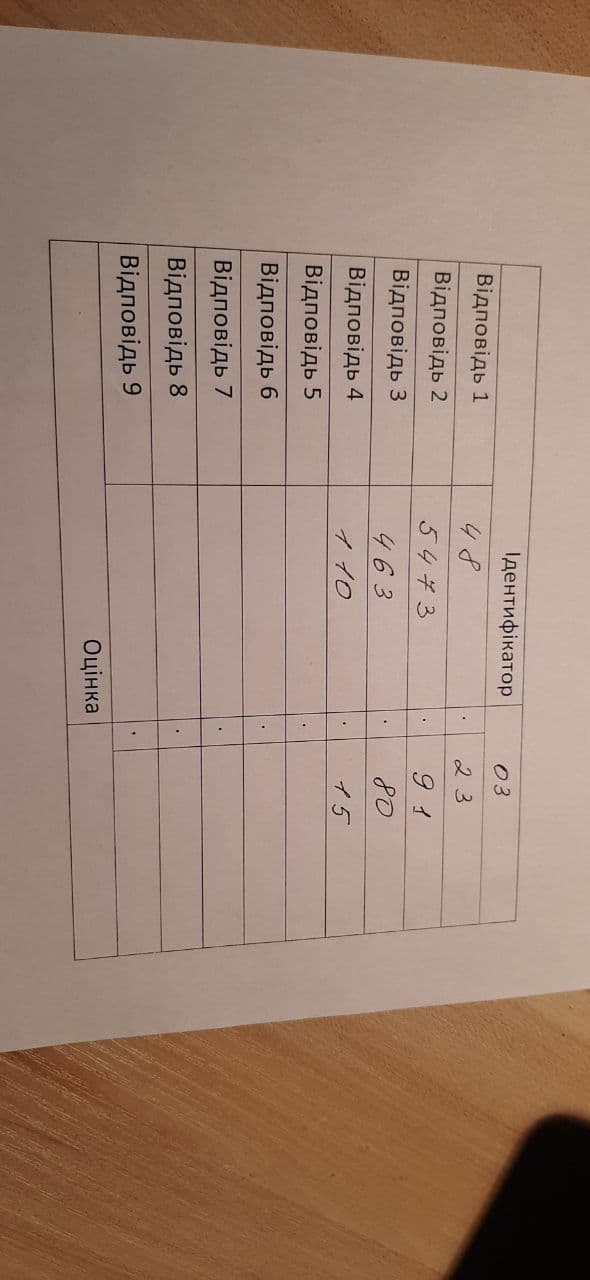 Ідентифікатор 03
Відповідь 1 48 . 23
Відповідь 2 5473 . 91
Відповідь 3 463 . 80
Відповідь 4 110 . 15
Відповідь 5 .
Відповідь 6 .
Відповідь 7 .
Відповідь 8 .
Відповідь 9 .
Оцінка